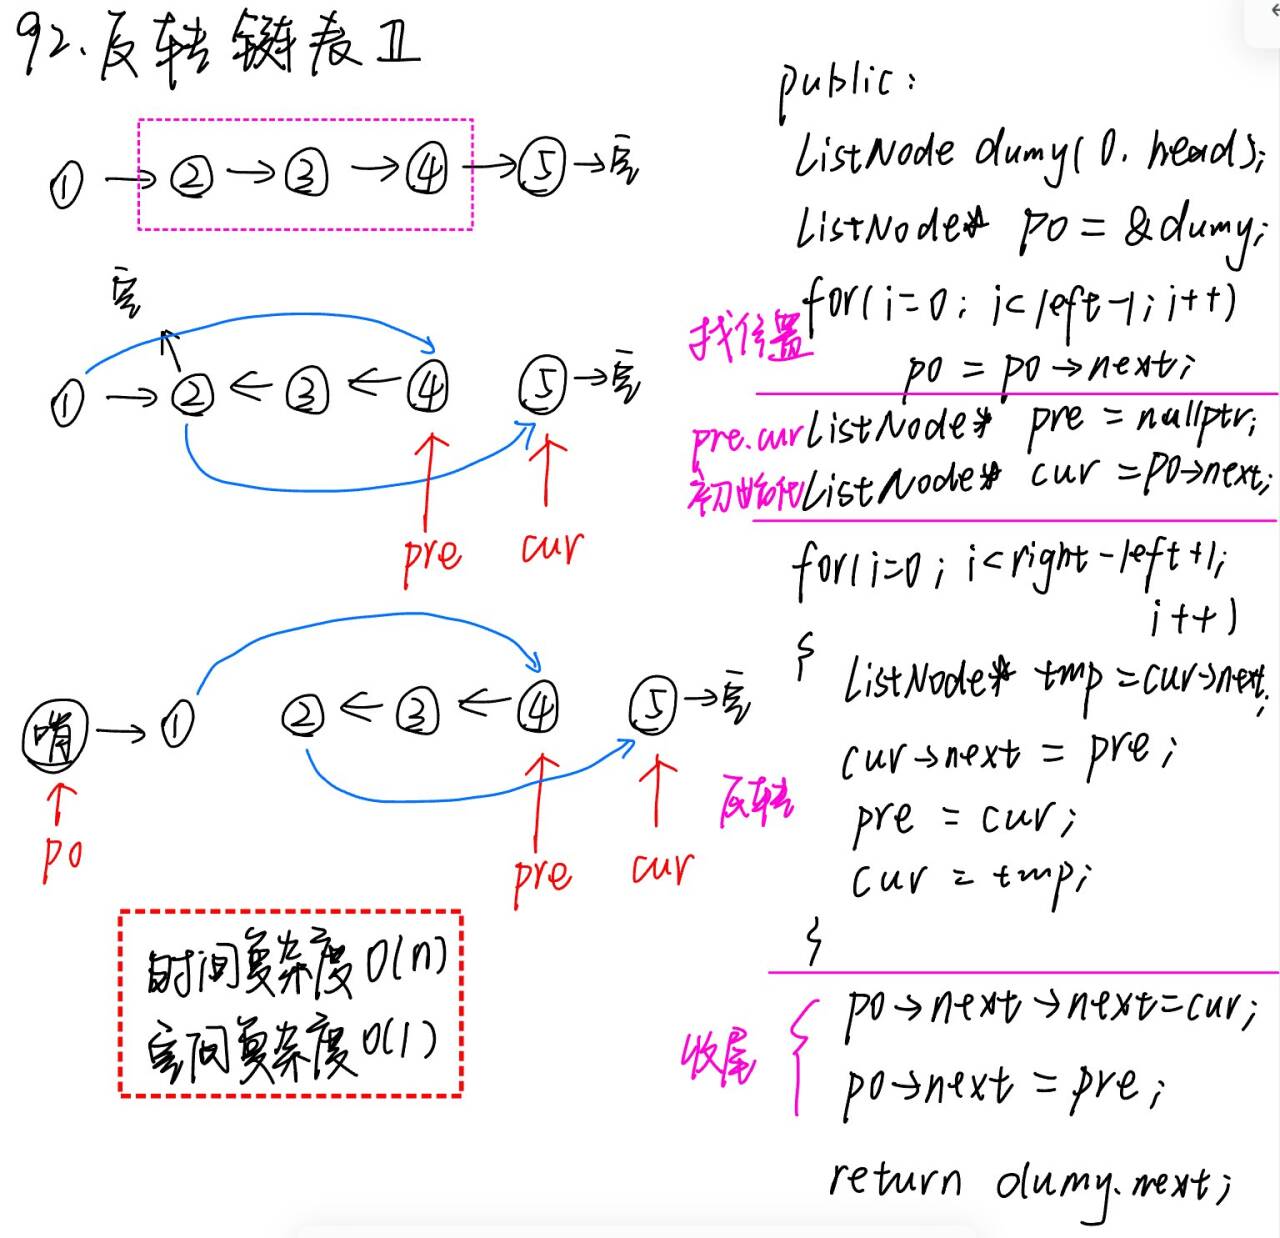 92.反转链表 II
① → ② → ③ → ④ → ⑤ → 空
空
① → ② ← ③ ← ④ ⑤ → 空
pre cur
哨 → ① ② ← ③ ← ④ ⑤ → 空
po pre cur
时间复杂度 O(n)
空间复杂度 O(1)
public:
ListNode dumy(0. head);
ListNode* po = &dumy;
for(i=0; i<left-1; i++)
找位置
po = po→next;
pre.cur
初始化
ListNode* pre = nullptr;
ListNode* cur = po→next;
for(i=0; i<right-left+1;
i++)
{
ListNode* tmp = cur→next;
cur→next = pre;
反转
pre = cur;
cur = tmp;
}
收尾
po→next→next=cur;
po→next = pre;
return dumy.next;